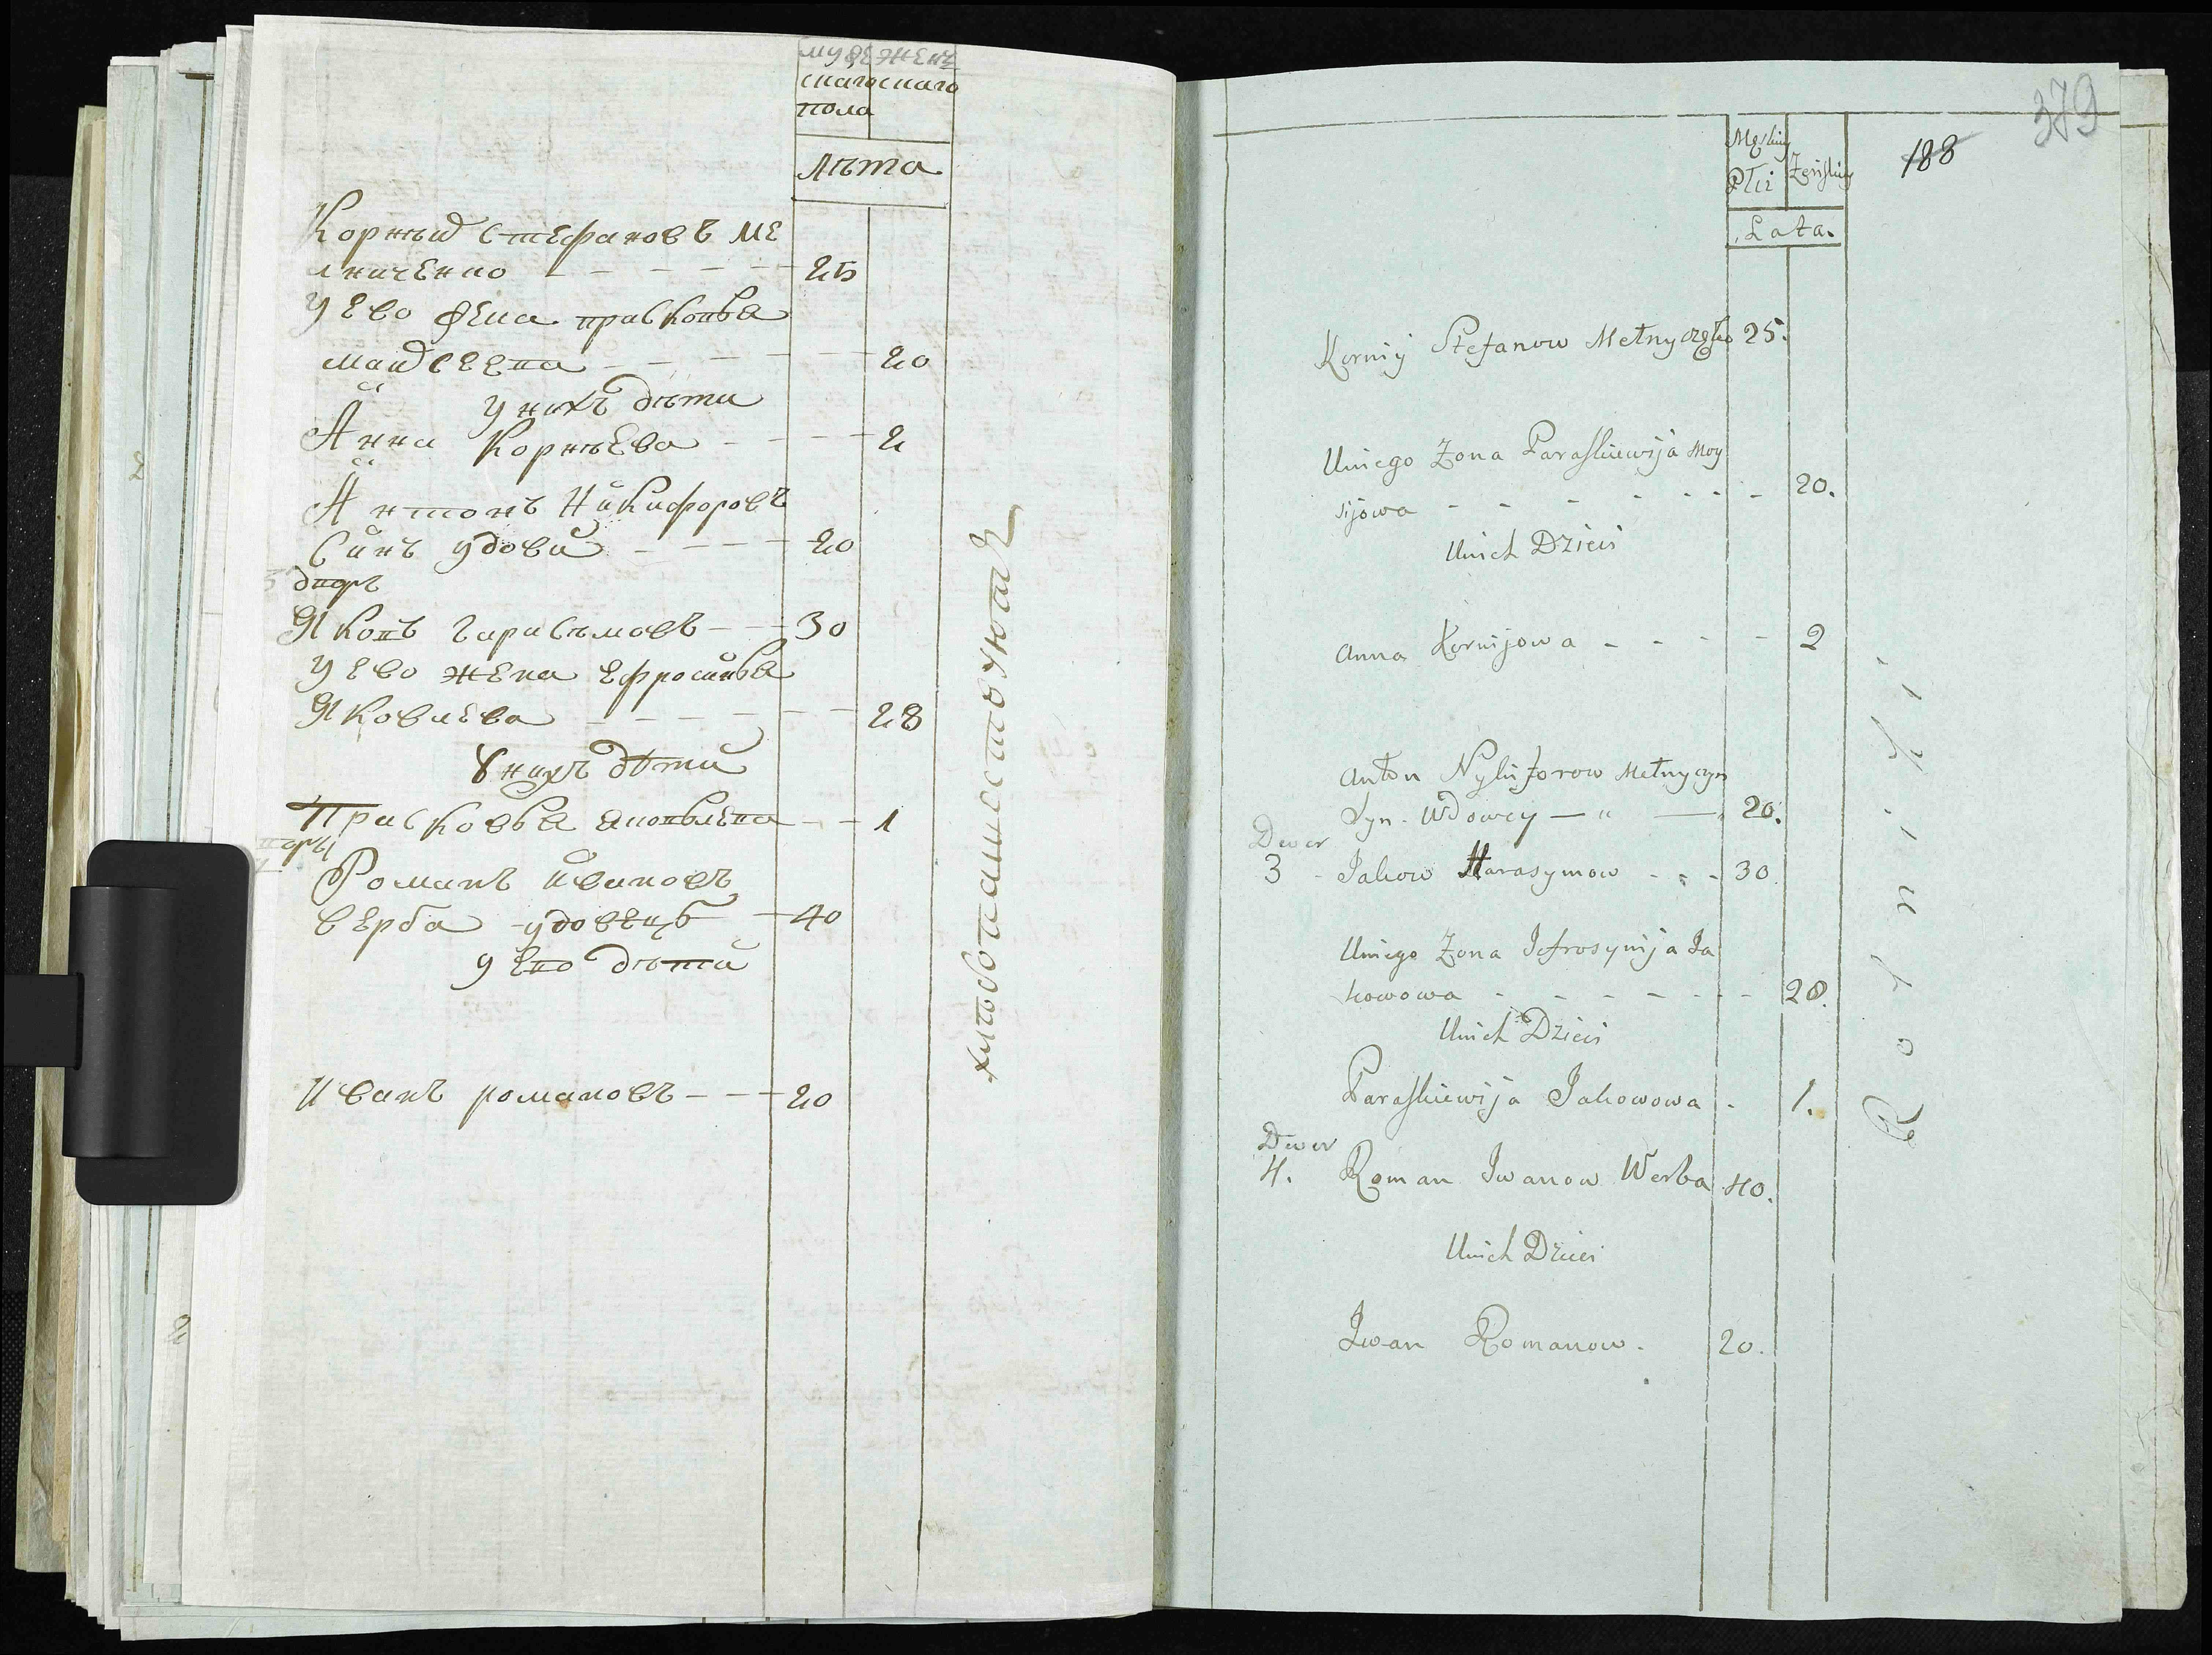 муже женъ
скаго скаго
пола
лѣта
Корный Стефановъ ме
лниченко 25
у ево жена прасковья
майсеева 20
у нихъ дѣти
Анна Корнѣева 2
Антонъ Никифоровъ
Синъ удови 20
двиръ
Яковъ Гарасимовъ 30
у ево жена ефросинья
Яковлева 28
у нихъ дѣти
Прасковья яковлева 1
двиръ
Романъ ивановъ
верба удовецъ 40
у ево дѣти
Иванъ романовъ 20
хлѣбопашествуютъ
379
188
Męskiy Żeńskiy
Płci
Lata.
Korniy Stefanow Mełnyczeńko 25.
Uniego Żona Paraskiewija Moy
sijowa - - - - - - - 20.
Unich Dzieci
Anna Kornijowa - - - - 2
Anton Nykiforow Mełnyczyn
Syn Wdowcy — " — 20.
Dwor
3 - Jakow Harasymow - - - 30
Uniego Żona Jefrosynija Ja
kowowa - - - - - - 28.
Unich Dzieci
Paraskiewija Jakowowa - 1.
Dwor
4. Roman Iwanow Werba 40.
Unich Dzieci
Iwan Romanow. 20.
Rolniki